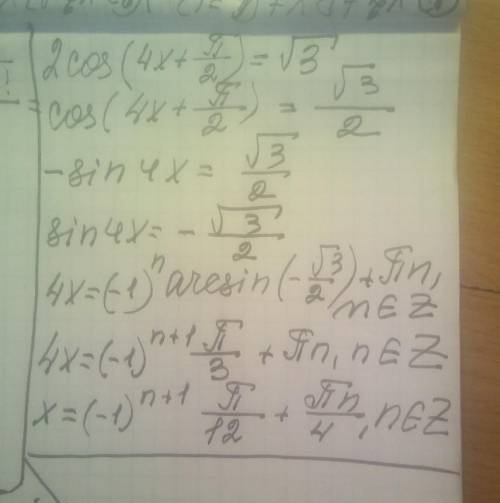 2cos(4x+π/2)=√3
=cos(4x+π/2)=√3/2
-sin4x=√3/2
sin4x=-√3/2
4x=(-1)ⁿarcsin(-√3/2)+πn,
n∈Z
4x=(-1)ⁿ⁺¹π/3+πn,n∈Z
x=(-1)ⁿ⁺¹π/12+πn/4,n∈Z